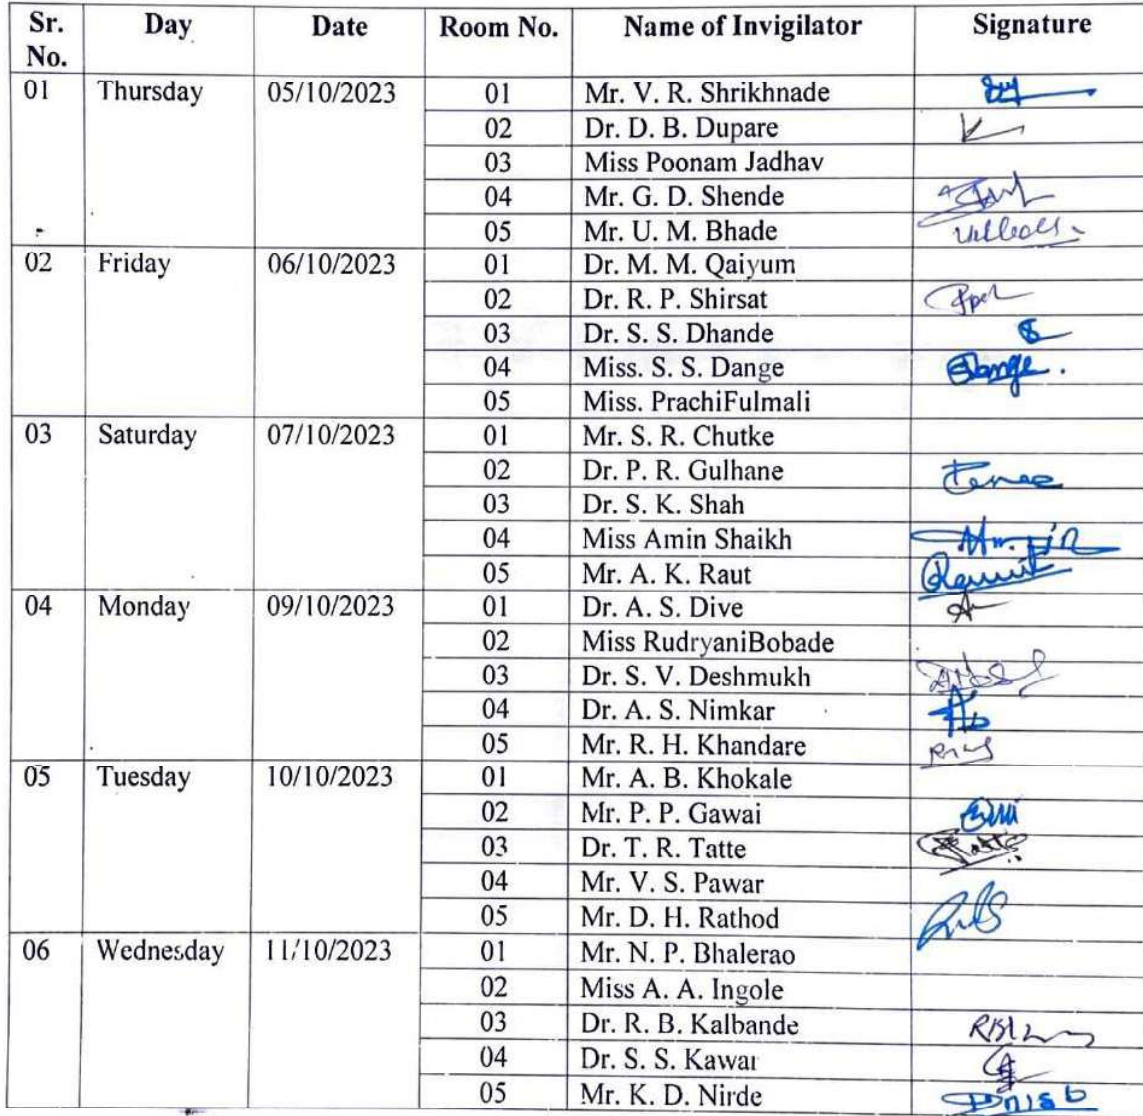 Sr. No. Day Date Room No. Name of Invigilator Signature
01 Thursday 05/10/2023 01 Mr. V. R. Shrikhnade
02 Dr. D. B. Dupare
03 Miss Poonam Jadhav
04 Mr. G. D. Shende
05 Mr. U. M. Bhade
02 Friday 06/10/2023 01 Dr. M. M. Qaiyum
02 Dr. R. P. Shirsat
03 Dr. S. S. Dhande
04 Miss. S. S. Dange
05 Miss. PrachiFulmali
03 Saturday 07/10/2023 01 Mr. S. R. Chutke
02 Dr. P. R. Gulhane
03 Dr. S. K. Shah
04 Miss Amin Shaikh
05 Mr. A. K. Raut
04 Monday 09/10/2023 01 Dr. A. S. Dive
02 Miss RudryaniBobade
03 Dr. S. V. Deshmukh
04 Dr. A. S. Nimkar
05 Mr. R. H. Khandare
05 Tuesday 10/10/2023 01 Mr. A. B. Khokale
02 Mr. P. P. Gawai
03 Dr. T. R. Tatte
04 Mr. V. S. Pawar
05 Mr. D. H. Rathod
06 Wednesday 11/10/2023 01 Mr. N. P. Bhalerao
02 Miss A. A. Ingole
03 Dr. R. B. Kalbande
04 Dr. S. S. Kawar
05 Mr. K. D. Nirde